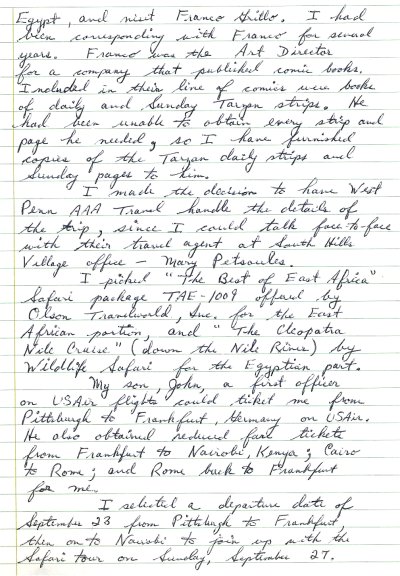 Egypt, and visit Franco Grillo. I had
been corresponding with Franco for several
years. Franco was the Art Director
for a company that published comic books.
Included in their line of comics were books
of daily and Sunday Tarzan strips. He
had been unable to obtain every strip and
page he needed, so I have furnished
copies of the Tarzan daily strips and
Sunday pages to him.
I made the decision to have West
Penn AAA Travel handle the details of
the trip, since I could talk face-to-face
with their travel agent at South Hills
Village office - Mary Petsoules.
I picked "The Best of East Africa"
Safari package TAE-1009 offered by
Olson Transworld, Inc. for the East
African portion, and "The Cleopatra
Nile Cruise" (down the Nile River) by
Wildlife Safari for the Egyptian part.
My son, John, a first officer
on USAir flights could ticket me from
Pittsburgh to Frankfurt, Germany on USAir.
He also obtained reduced fare tickets
from Frankfurt to Nairobi, Kenya; Cairo
to Rome; and Rome back to Frankfurt
for me.
I selected a departure date of
September 23 from Pittsburgh to Frankfurt,
then on to Nairobi to join up with the
Safari tour on Sunday, September 27.